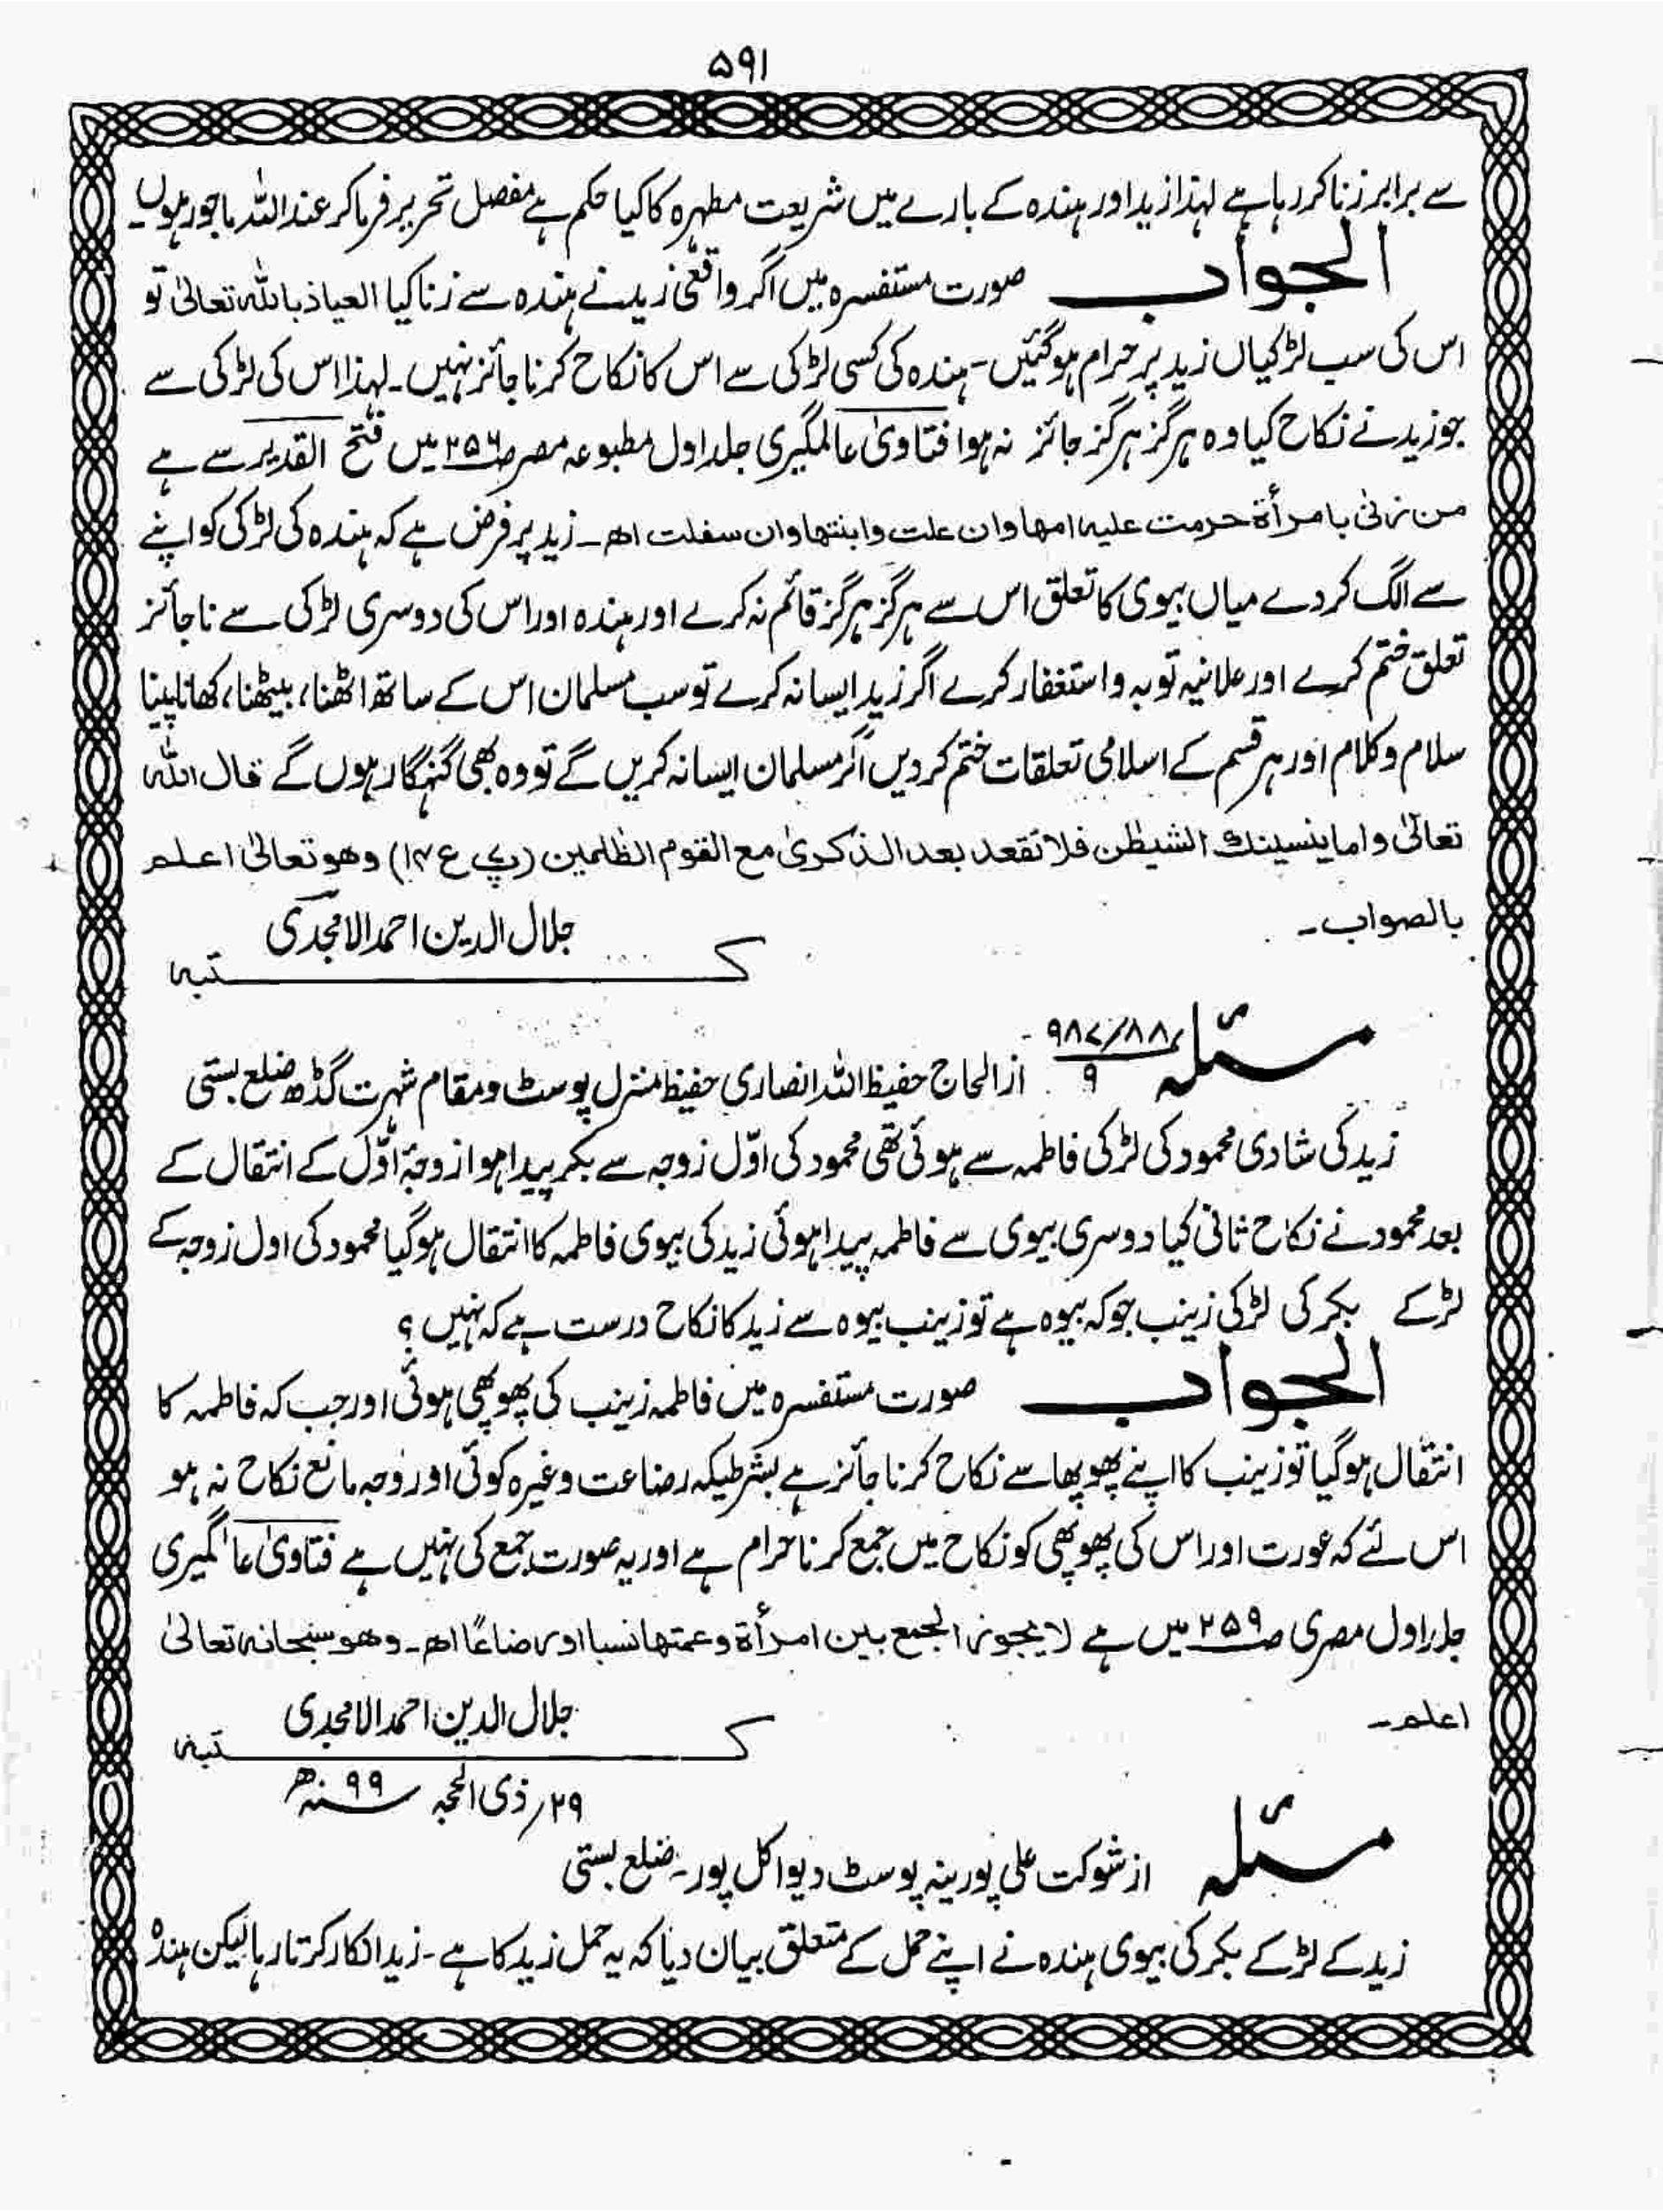 ۵۹۱
سے برابر زنا کر رہا ہے لہذا زید اور ہندہ کے بارے میں شریعت مطہرہ کا کیا حکم ہے مفصل تحریر فرما کر عند اللہ ماجور ہوں
الجواب صورت مستفسرہ میں اگر واقعی زید نے ہندہ سے زنا کیا العیاذ باللہ تعالیٰ تو
اس کی سب لڑکیاں زید پر حرام ہوگئیں۔ ہندہ کی کسی لڑکی سے اس کا نکاح کرنا جائز نہیں۔ لہذا اس کی لڑکی سے
جو زید نے نکاح کیا وہ ہرگز ہرگز جائز نہ ہوا فتاویٰ عالمگیری جلد اول مطبوعہ مصر ص۲۵۶ میں فتح القدیر سے ہے
من زنی بامرأۃ حرمت علیہ امھا وان علت وابنتھا وان سفلت اھ۔ زید پر فرض ہے کہ ہندہ کی لڑکی کو اپنے
سے الگ کردے میاں بیوی کا تعلق اس سے ہرگز ہرگز قائم نہ کرے اور ہندہ اور اس کی دوسری لڑکی سے ناجائز
تعلق ختم کرے اور علانیہ توبہ و استغفار کرے اگر زید ایسا نہ کرے تو سب مسلمان اس کے ساتھ اٹھنا، بیٹھنا، کھانا پینا
سلام و کلام اور ہر قسم کے اسلامی تعلقات ختم کردیں اگر مسلمان ایسا نہ کریں گے تو وہ بھی گنہگار ہوں گے قال اللہ
تعالیٰ واما ینسینك الشیطٰن فلا تقعد بعد الذکریٰ مع القوم الظٰلمین (پ ع ۱۴) وھو تعالیٰ اعلم
بالصواب۔
جلال الدین احمد الامجدی
کتبہ
مسئلہ ۹۸۷/۸۸ ۹ از الحاج حفیظ اللہ انصاری حفیظ منزل پوسٹ و مقام شہرت گڈھ ضلع بستی
زید کی شادی محمود کی لڑکی فاطمہ سے ہوئی تھی محمود کی اوّل زوجہ سے بکر پیدا ہوا زوجۂ اوّل کے انتقال کے
بعد محمود نے نکاح ثانی کیا دوسری بیوی سے فاطمہ پیدا ہوئی زید کی بیوی فاطمہ کا انتقال ہوگیا محمود کی اول زوجہ کے
لڑکے بکر کی لڑکی زینب جو کہ بیوہ ہے تو زینب بیوہ سے زید کا نکاح درست ہے کہ نہیں؟
الجواب صورت مستفسرہ میں فاطمہ زینب کی پھوپھی ہوئی اور جب کہ فاطمہ کا
انتقال ہوگیا تو زینب کا اپنے پھوپھا سے نکاح کرنا جائز ہے بشرطیکہ رضاعت وغیرہ کوئی اور وجہ مانع نکاح نہ ہو
اس لئے کہ عورت اور اس کی پھوپھی کو نکاح میں جمع کرنا حرام ہے اور یہ صورت جمع کی نہیں ہے فتاویٰ عالمگیری
جلد اول مصری ص۲۵۹ میں ہے لایجوز الجمع بین امرأۃ وعمتھا نسبا او رضاعًا اھ۔ وھو سبحانہ تعالیٰ
اعلم۔
جلال الدین احمد الامجدی
کتبہ
۲۹؍ذی الحجہ سنہ ۹۹ھ
مسئلہ از شوکت علی پورینہ پوسٹ دیواکل پور۔ ضلع بستی
زید کے لڑکے بکر کی بیوی ہندہ نے اپنے حمل کے متعلق بیان دیا کہ یہ حمل زید کا ہے۔ زید انکار کرتا رہا لیکن ہندہ